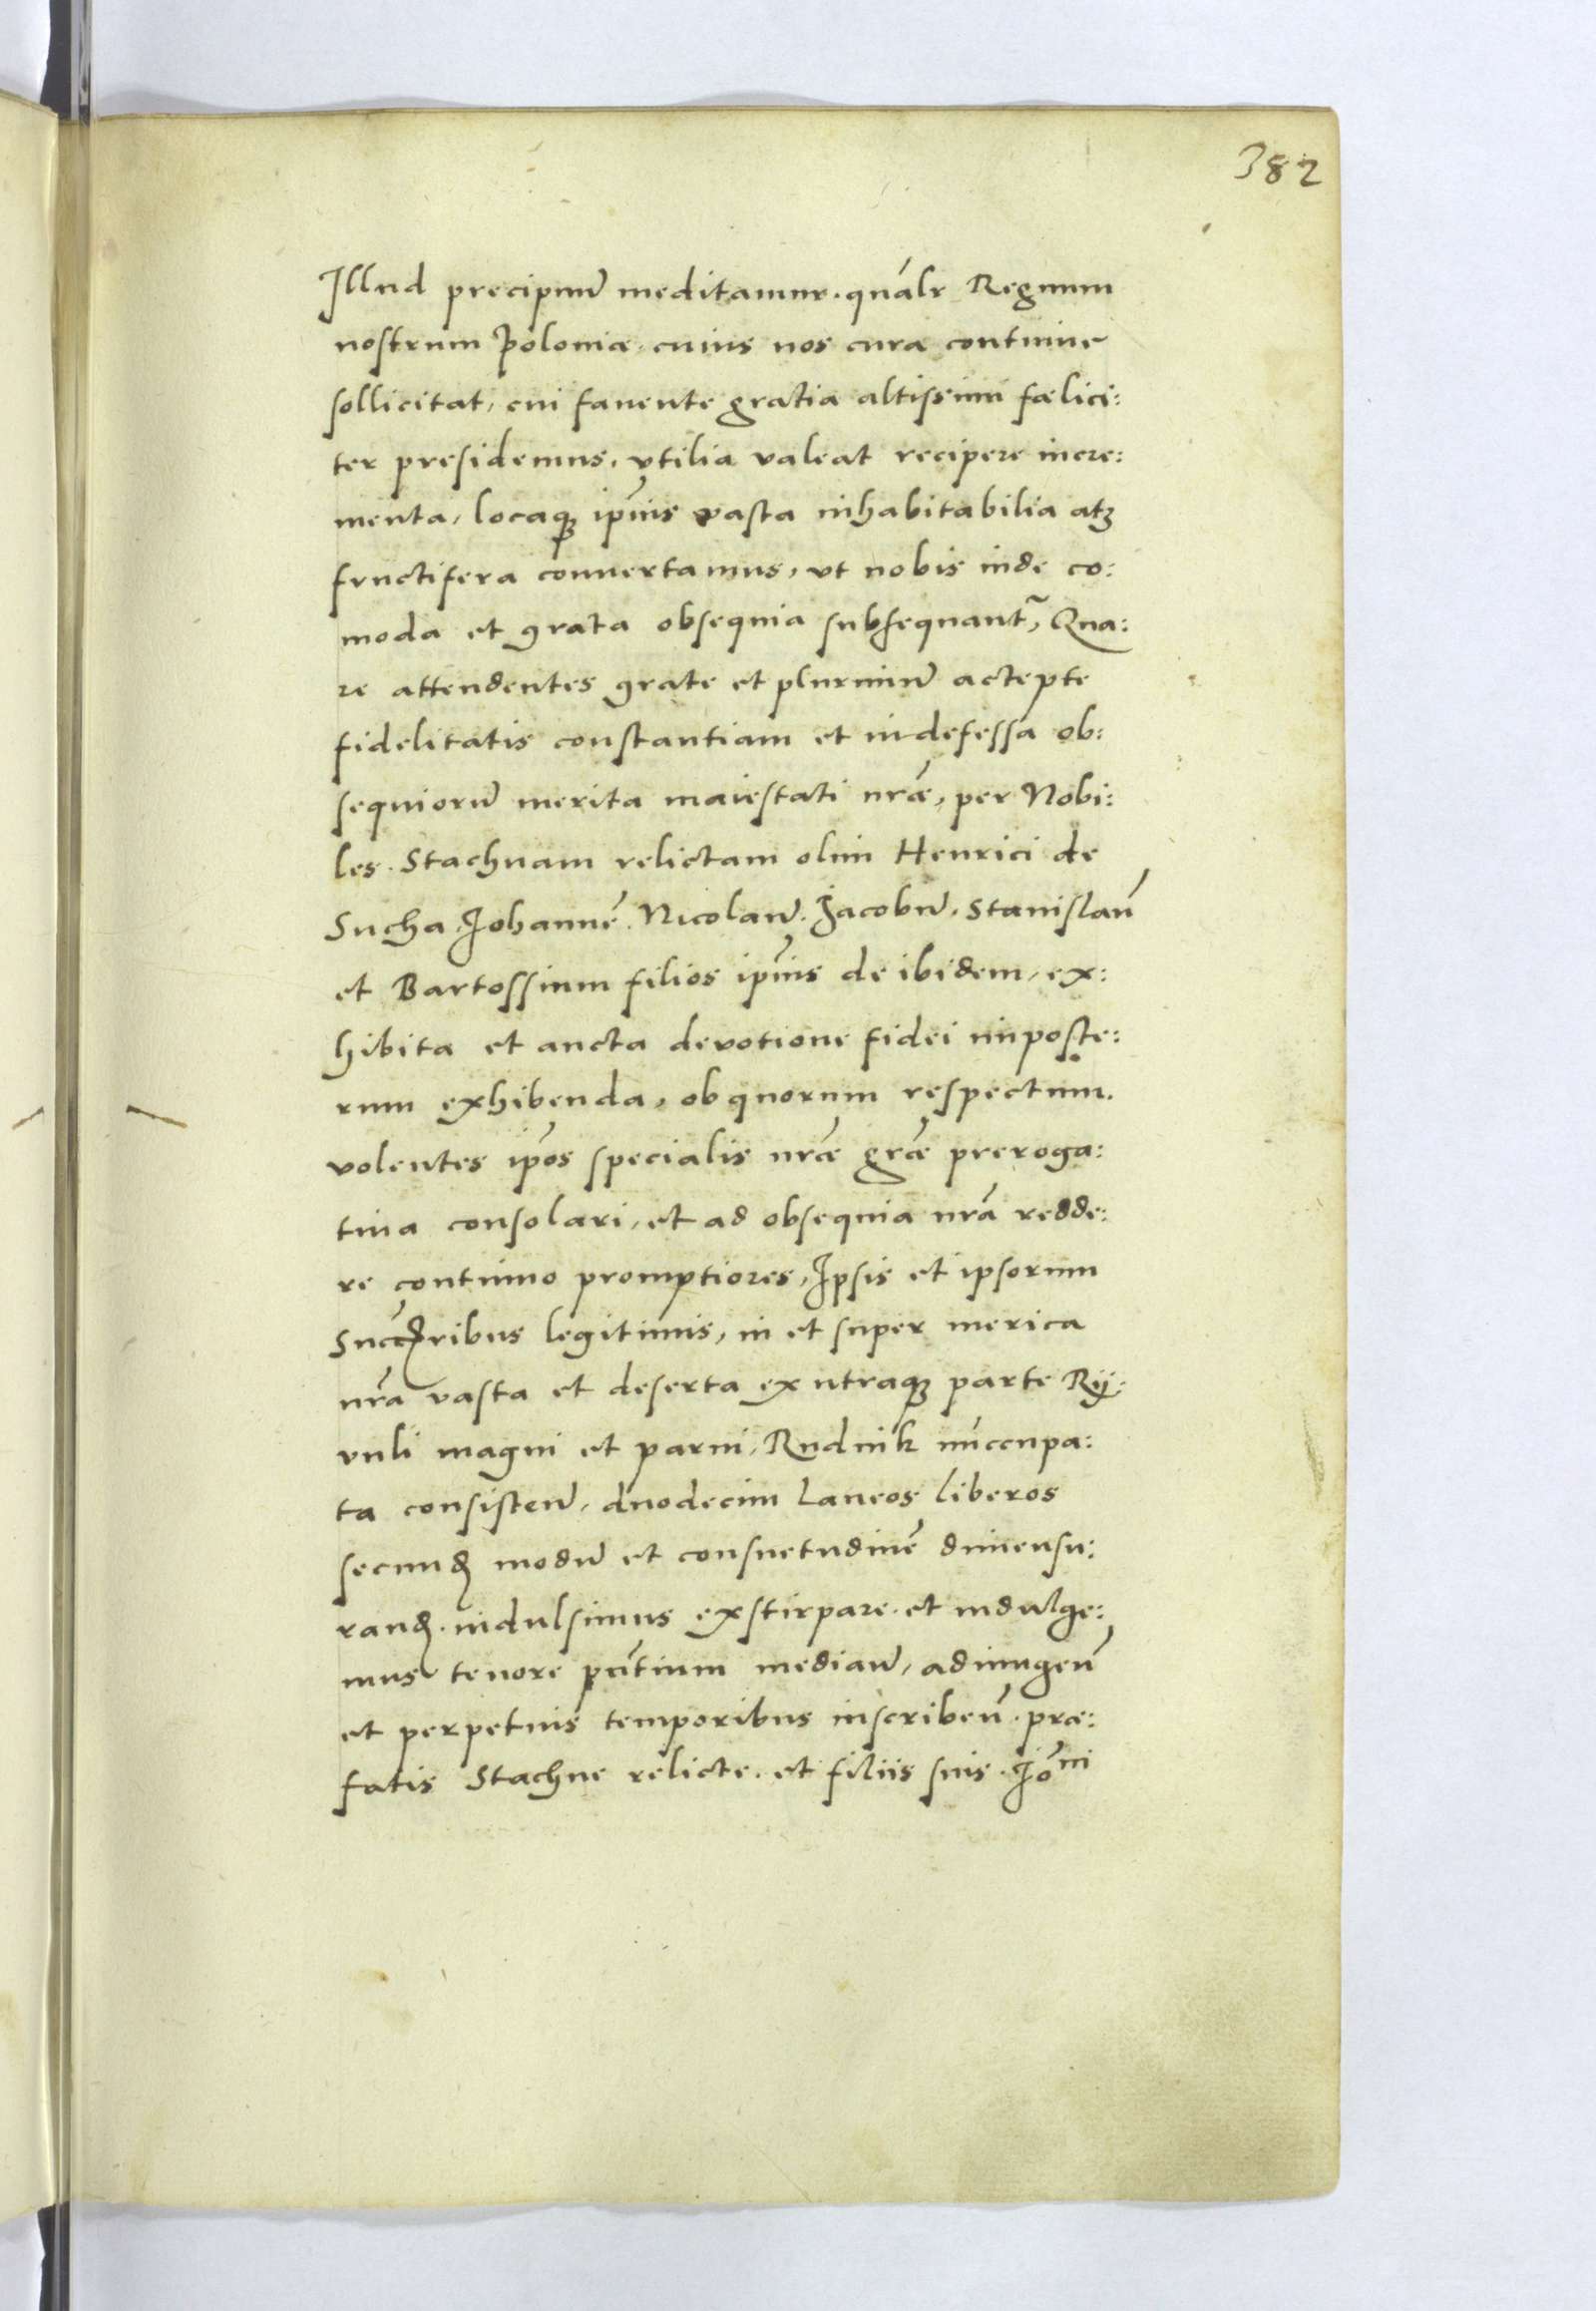 382
Illud precipuū meditamur. quālr Regnum
nostrum Poloniæ, cuius nos cura continue
sollicitat, cui favente gratia altissimi fælici:
ter presidemus, vtilia valeat recipere incre:
menta, locaqꝫ ip̄ius vasta inhabitabilia atqꝫ
fructifera convertamus, vt nobis inde co:
moda et grata obsequia subsequant̃, Qua:
re attendentes grate et plurimū accepte
fidelitatis constantiam et indefessa ob:
sequiorū merita maiestati nr̄æ, per Nobi:
les. Stachnam relictam olim Henrici de
Sucha. Johannē. Nicolaū. Jacobū. Stanislaū
et Bartossium filios ip̄ius de ibidem, ex:
hibita et aucta devotione fidei imposte:
rum exhibenda, ob quorum respectum.
volentes ip̄os specialis nr̄æ gr̄æ preroga:
tiva consolari, et ad obsequia nr̄a redde:
re continuo promptiores, Ipsis et ipsorum
Succ̄ꝝibus legitimis, in et super merica
nr̄a vasta et deserta ex utraqꝫ parte Rij:
vuli magni et parvi, Rudnik nūccupa:
ta consisteñ, duodecim laneos liberos
secunđ modū et consuetudinē dimensu:
ranđ. indulsimus exstirpare. et indulge:
mus tenore p̄ntium mediañ, adiungeñ
et perpetuis temporibus inscribeñ. præ:
fatis Stachne relicte. et filiis suis. Jōni